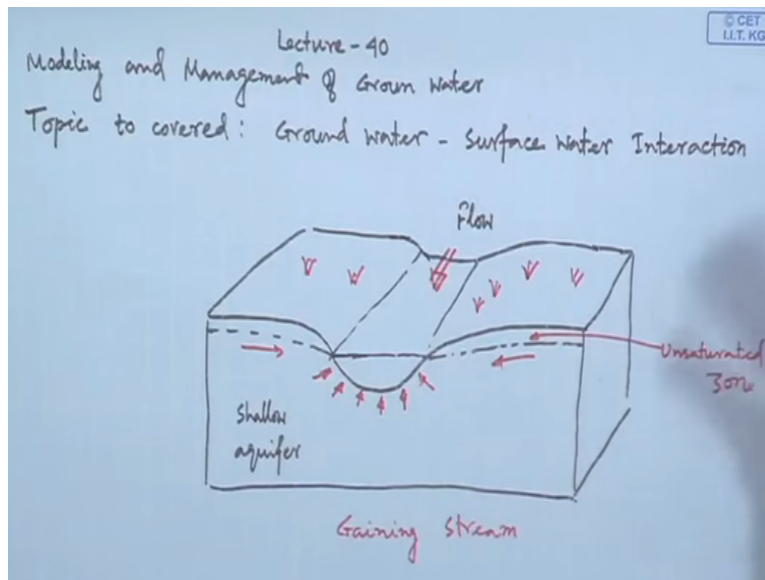 Lecture - 40
© CET
I.I.T. KG
Modeling and Management of Groun Water
Topic to covered: Ground water - Surface Water Interaction
Flow
Unsaturated
Zone
Shallow
aquifer
Gaining Stream